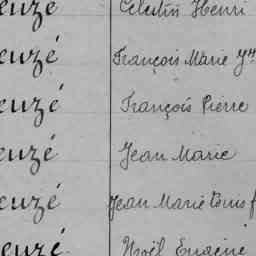 euzé Célestin Henri
euzé François Marie Yves
euzé François Pierre
euzé Jean Marie
euzé Jean Marie Louis
euzé Noël Eugène